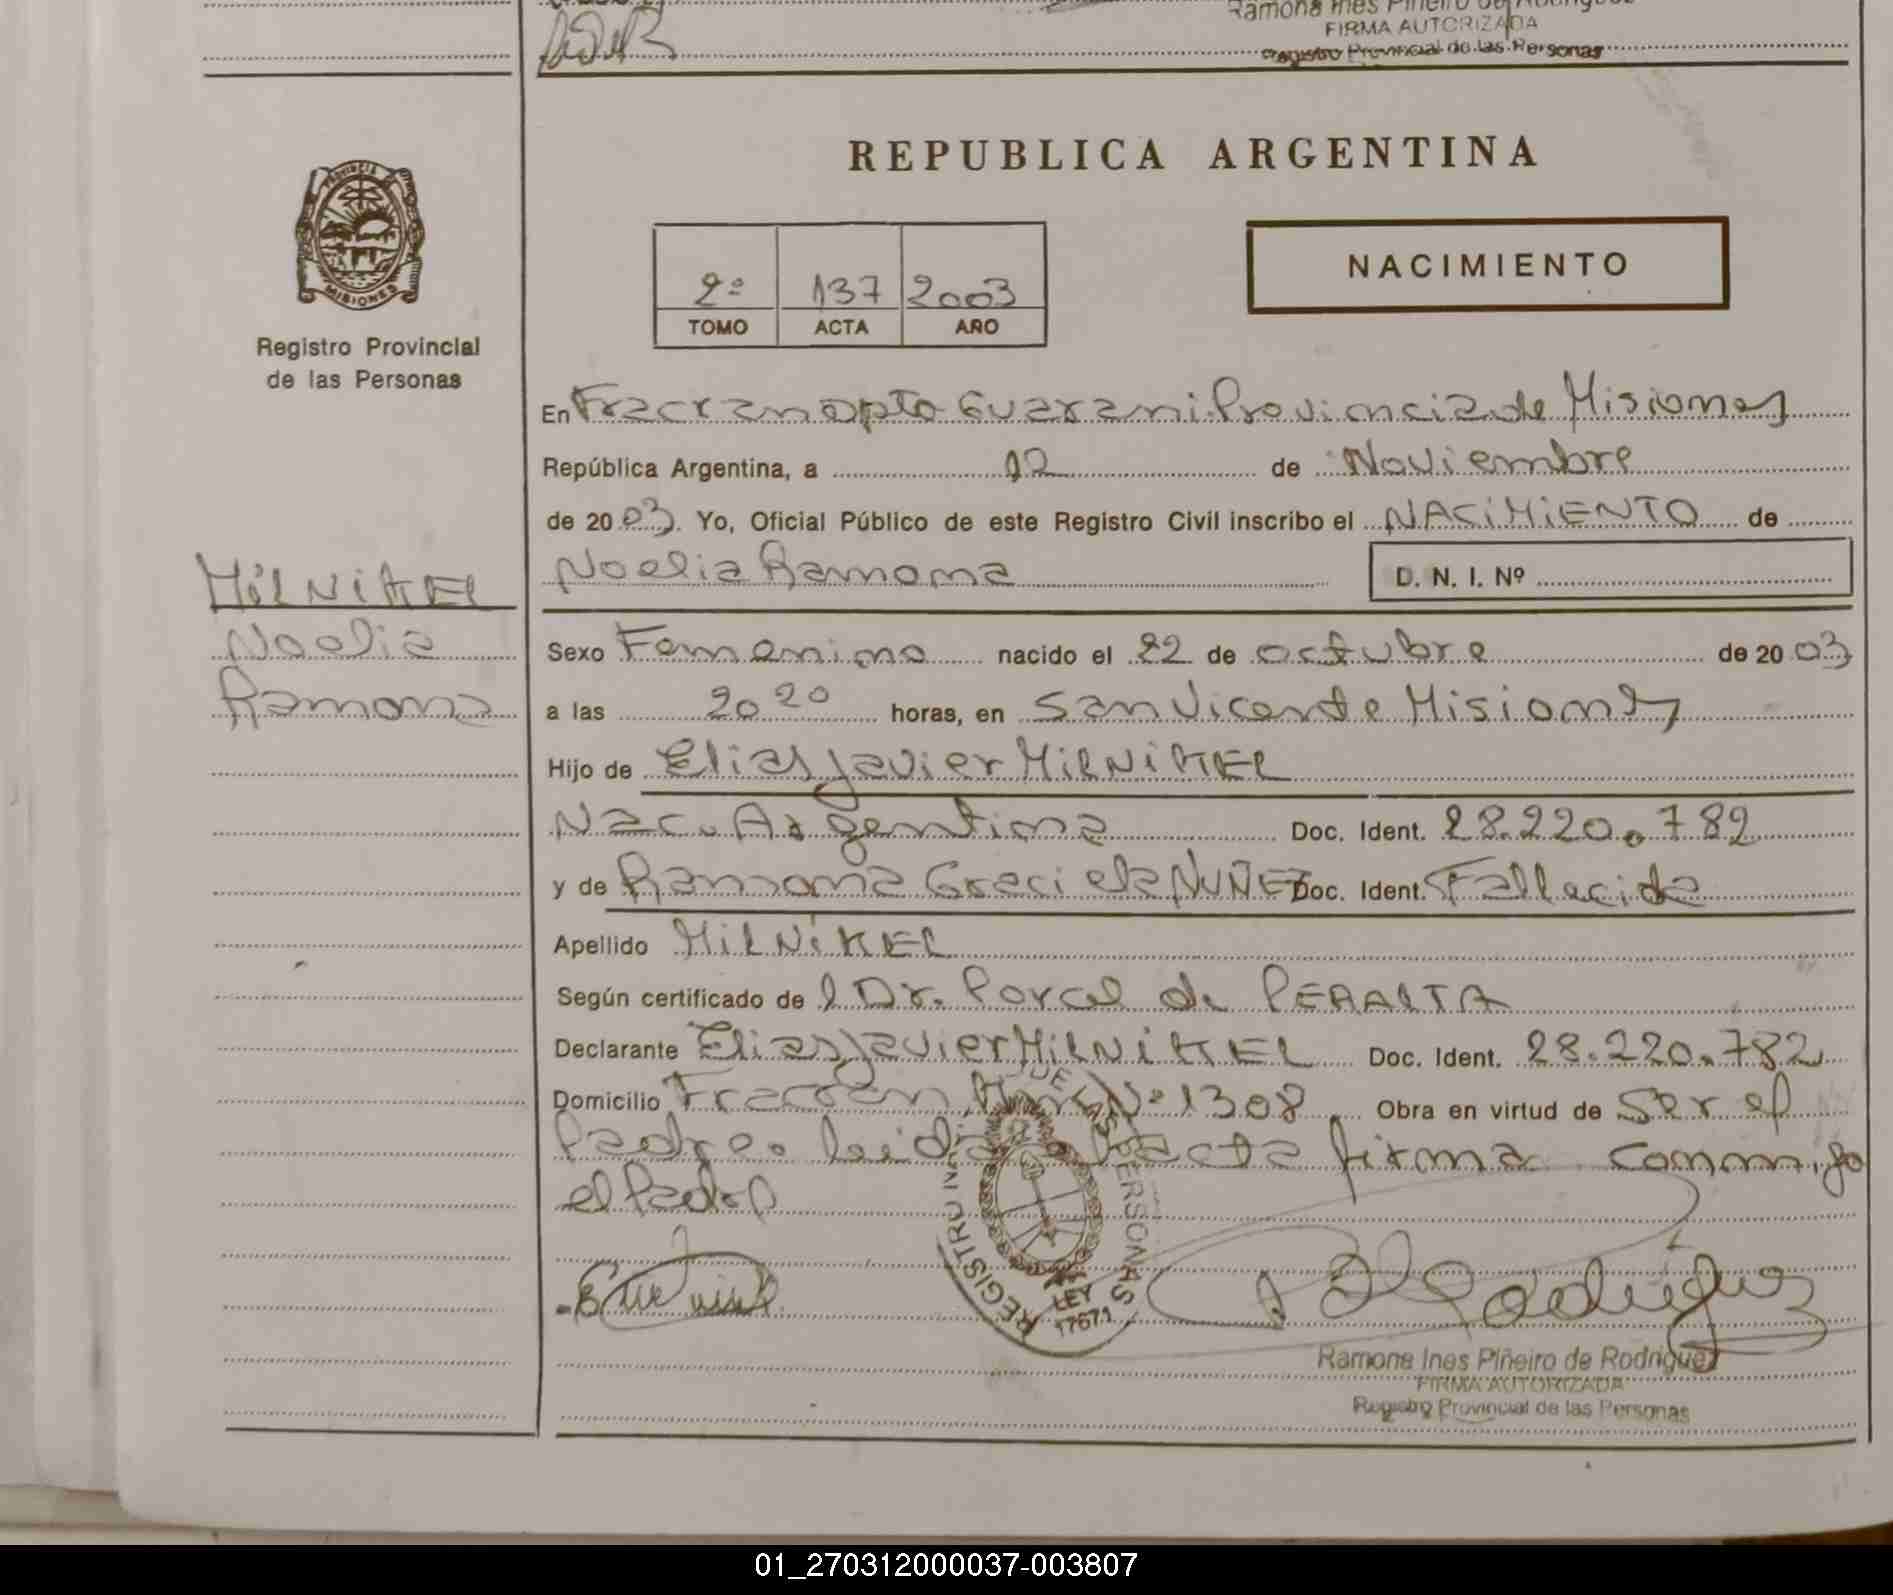 Ramona Ines Piñeiro de Rodriguez
FIRMA AUTORIZADA
Registro Provincial de las Personas
REPUBLICA ARGENTINA
PROVINCIA DE
MISIONES
Registro Provincial
de las Personas
2º 137 2003
TOMO ACTA AÑO
NACIMIENTO
En Fracran Dpto Guarani Provincia de Misiones
República Argentina, a 12 de Noviembre
de 2003. Yo, Oficial Público de este Registro Civil inscribo el NACIMIENTO de
Noelia Ramona D. N. I. Nº
MILNIKEL
Noelia
Ramona
Sexo Femenino nacido el 22 de octubre de 2003
a las 20 20 horas, en San Vicente Misiones
Hijo de Elias Javier MILNIKEL
Nac. Argentina Doc. Ident. 28.220.782
y de Ramona Graciela NUÑEZ Doc. Ident. Fallecida
Apellido MILNIKEL
Según certificado de l Dr. Porcel de PERALTA
Declarante Elias Javier MILNIKEL Doc. Ident. 28.220.782
Domicilio Fracran, Nº 1308 Obra en virtud de Ser el
Padre. leida acta firma conmigo
el Padre
REGISTRO DE LAS PERSONAS
LEY
17671
Rodriguez
Ramona Ines Piñeiro de Rodriguez
FIRMA AUTORIZADA
Registro Provincial de las Personas
01_270312000037-003807